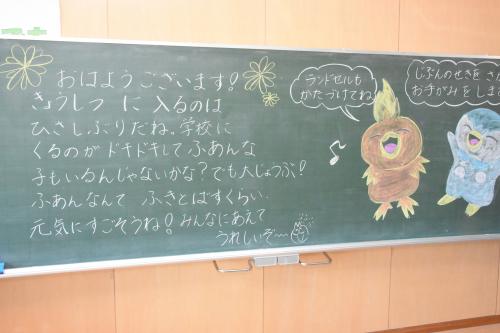 おはようございます!
きょうしつ に 入るのは
ひさしぶりだね。学校に
くるのが ドキドキして ふあんな
子もいるんじゃないかな?でも大じょうぶ!
ふあんなんて ふきとばすくらい
元気にすごそうね!みんなにあえて
うれしいぞ〜
ランドセルも
かたづけてね
じぶんのせきを さ
お手がみをしま